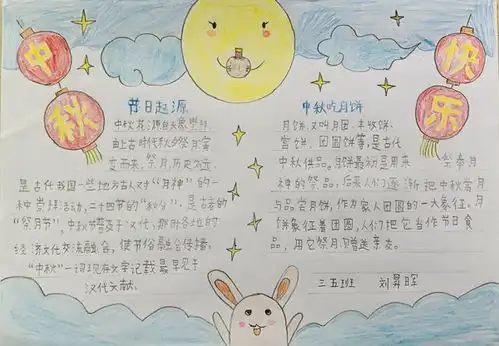 中秋
快乐
节日起源
中秋节源自天象崇拜,
由上古时代秋夕祭月演
变而来。祭月,历史久远,
是古代我国一些地方古人对“月神”的一
种崇拜活动,二十四节的“秋分”,是古老的
“祭月节”,中秋节普及于汉代,那时各地的
经济文化交流融合,使节俗融合传播。
“中秋”一词现存文字记载最早见于
汉代文献。
中秋吃月饼
月饼,又叫月团、丰收饼、
宫饼、团圆饼等,是古代
中秋供品。月饼最初是用来祭奉月
神的祭品,后来人们逐渐把中秋赏月
与品尝月饼,作为家人团圆的一大象征。月
饼象征着团圆,人们把它当作节日食
品,用它祭月、赠送亲友。
三五班 刘昇晖